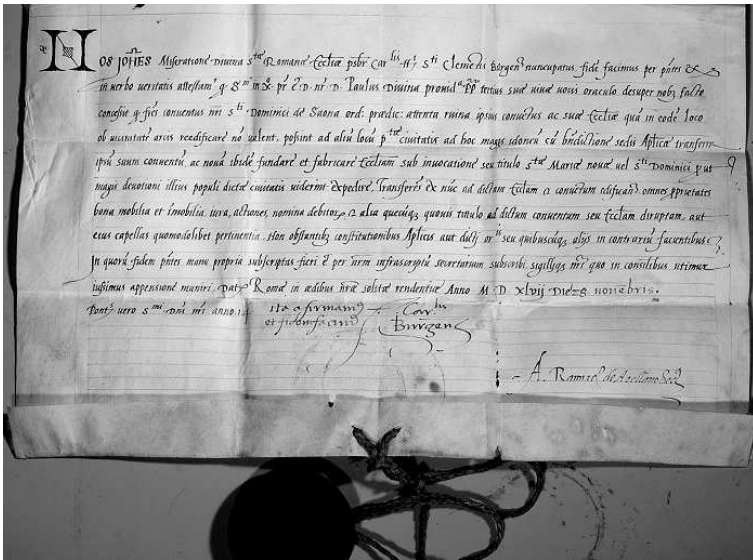 NOS JOHES Miseratione Divina Stae Romanae Eccliae psbr Carlis tt. Sti Clemetis Burgen nuncupatus, fide facimus per pntes &
in verbo veritatis attestam q Smus in X. pr & D. nr D. Paulus Divina provida PP tertius suae vivae vocis oraculo desuper nobis facto
concessit q fres conventus nri sti Dominici de Saona ord: praedic: attenta ruina ipsius conuctus ac suae Eccliae qua in eode loco
ob vicinitate arcis reedificare no valent, possint ad aliu locu ptae civitatis ad hoc magis idoneu cu bndictione sedis Aplicae transferre
ipsu suum conventu, ac nova ibide fundare et fabricare Eccliam sub invocatione seu titulo stae Mariae novae vel sti Dominici put
magis devotioni illius populi dictae civitatis viderint expedire. Transferes ex nuc ad dictam Ecclam a conuctum edificand omnes pprietates
bona mobilia et imobilia, iura, actiones, nomina debitor, & alia quecuq quovis titulo ad dictum conventum seu Ecclam diruptam, aut
eius capellas quomodolibet pertinentia. Non obstantib constitutionibus Aplicis aut dicti ortis seu quibuscuq alijs in contrariu facientibus
In quoru fidem pntes manu propria subscriptas fieri & per nrm infrascriptu secretarium subscribi sigilliq nri quo in consilibus utimur
iussimus appensione muniri. Dat Romae in aedibus nrae solitae residentiae Anno M D xlvij Die 28 novebris.
Pont vero smi dni nri anno. 14
ita afirmam
et fidem facim
Carlis
Burgen
A. Ramirez de Arellano Secr